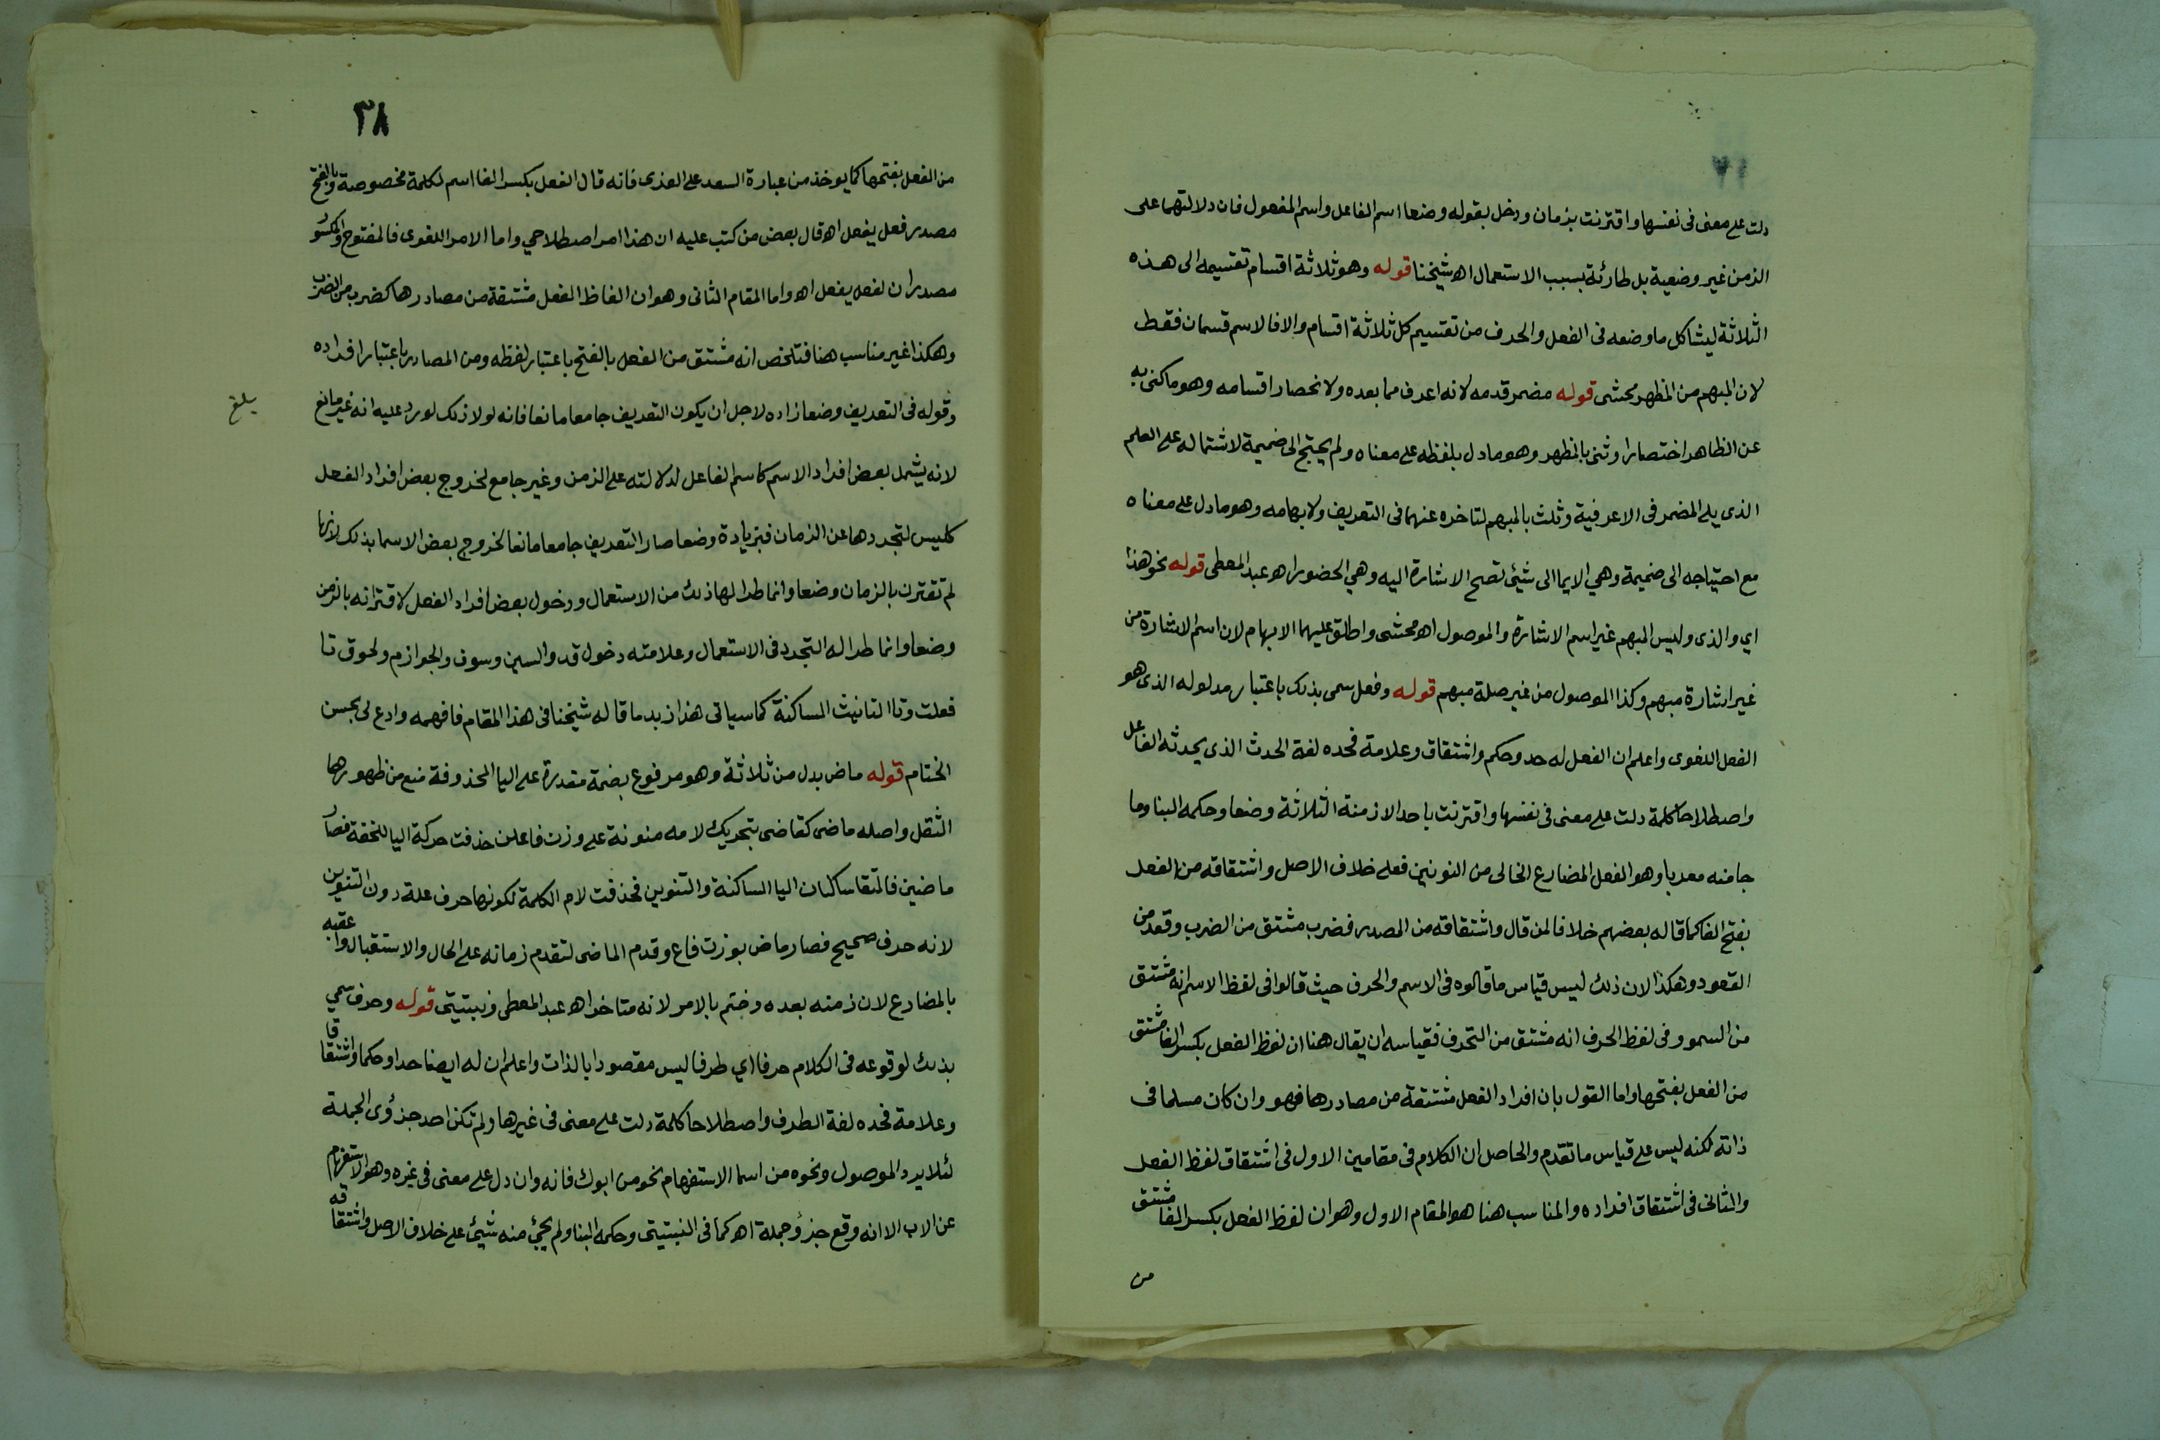 دلت على معنى فى نفسها واقترنت بزمان ودخل بقوله وضعا اسم الفاعل واسم المفعول فان دلالتهما على
الزمن غير وضعية بل طارئة بسبب الاستعمال اه شيخنا قوله وهو ثلاثة اقسام تقسيمه الى هذه
الثلاثة ليشاكل ما وضعه فى الفعل والحرف من تقسيم كل ثلاثة اقسام والا فالاسم قسمان فقط
لان المبهم من المظهر محشى قوله مضمر قدمه لانه اعرف مما بعده ولانحصار اقسامه وهو ما كنى به
عن الظاهر اختصارا وثنى بالمظهر وهو ما دل بلفظه على معناه ولم يحتج الى ضميمة لاشتماله على العلم
الذى يلى المضمر فى الاعرفية وثلث بالمبهم لتاخره عنهما فى التعريف ولابهامه وهو ما دل على معناه
مع احتياجه الى ضميمة وهي الايما الى شيئ تصح الاشارة اليه وهي الحضور اه عبد المعطى قوله نحو هذا
اي والذى وليس المبهم غير اسم الاشارة والموصول اه محشى واطلق عليهما الابهام لان اسم الاشارة من
غير اشارة مبهم وكذا الموصول من غير صلة مبهم قوله وفعل سمى بذلك باعتبار مدلوله الذى هو
الفعل اللغوى واعلم ان الفعل له حد وحكم واشتقاق وعلامة فحده لغة الحدث الذى يحدثه الفاعل
واصطلاحا كلمة دلت على معنى فى نفسها واقترنت باحد الازمنة الثلاثة وضعا وحكمه البنا وما
جا منه معربا وهو الفعل المضارع الخالى من النونين فعلى خلاف الاصل واشتقاقه من الفعل
بفتح الفا كما قاله بعضهم خلافا لمن قال واشتقاقه من المصدر فضرب مشتق من الضرب وقعد من
القعود وهكذا لان ذلك ليس قياس ما قالوه فى الاسم والحرف حيث قالوا فى لفظ الاسم انه مشتق
من السمو وفى لفظ الحرف انه مشتق من التحرف فقياسه ان يقال هنا ان لفظ الفعل بكسر الفا مشتق
من الفعل بفتحها واما القول بان افراد الفعل مشتقة من مصادرها فهو وان كان مسلما فى
ذاته لكنه ليس على قياس ما تقدم والحاصل ان الكلام فى مقامين الاول فى اشتقاق لفظ الفعل
والثانى فى اشتقاق افراده والمناسب هنا هو المقام الاول وهو ان لفظ الفعل بكسر الفا مشتق
من
٣٨
من الفعل بفتحها كما يوخذ من عبارة السعد على العزى فانه قال الفعل بكسر الفا اسم لكلمة مخصوصة وبالفتح
مصدر فعل يفعل اه قال بعض من كتب عليه ان هذا امر اصطلاحي واما الامر اللغوى فالمفتوح والمكسور
مصدران لفعل يفعل اه واما المقام الثانى وهو ان الفاظ الفعل مشتقة من مصادرها كضرب من الضرب
وهكذا غير مناسب هنا فتلخص انه مشتق من الفعل بالفتح باعتبار لفظه ومن المصادر باعتبار افراده
وقوله فى التعريف وضعا زاده لاجل ان يكون التعريف جامعا مانعا فانه لولا ذلك لورد عليه انه غير مانع
بلغ
لانه يشمل بعض افراد الاسم كاسم الفاعل لدلالته على الزمن وغير جامع لخروج بعض افراد الفعل
كليس لتجردها عن الزمان فبزيادة وضعا صار التعريف جامعا مانعا لخروج بعض الاسما بذلك لانها
لم تقترن بالزمان وضعا وانما طرا لها ذلك من الاستعمال ودخول بعض افراد الفعل لاقترانه بالزمن
وضعا وانما طرا له التجرد فى الاستعمال وعلامته دخول قد والسين وسوف والجوازم ولحوق تا
فعلت وتا التانيث الساكنة كما سياتى هذا زبد ما قاله شيخنا فى هذا المقام فافهمه وادع لى بحسن
الختام قوله ماض بدل من ثلاثة وهو مرفوع بضمة مقدرة على اليا المحذوفة منع من ظهورها
الثقل واصله ماضى كقاضى بتحريك لامه منونة على وزن فاعلن حذفت حركة اليا للخفة فصار
ماضين فالتقا ساكنان اليا الساكنة والتنوين فحذفت لام الكلمة لكونها حرف علة دون التنوين
لانه حرف صحيح فصار ماض بوزن فاع وقدم الماضى لتقدم زمانه على الحال والاستقبال واعقبه
بالمضارع لان زمنه بعده وختم بالامر لانه متاخر اه عبد المعطى ونبتيتى قوله وحرف سمي
بذلك لوقوعه فى الكلام حرفا اي طرفا ليس مقصودا بالذات واعلم ان له ايضا حدا وحكما واشتقاقا
وعلامة فحده لغة الطرف واصطلاحا كلمة دلت على معنى فى غيرها ولم تكن احد جزؤى الجملة
لئلا يرد الموصول ونحوه من اسما الاستفهام نحو من ابوك فانه وان دل على معنى فى غيره وهو الاستفهام
عن الاب الا انه وقع جزؤ جملة اه كما فى النبتيتى وحكمه البنا ولم يجئ منه شيئ على خلاف الاصل واشتقاقه